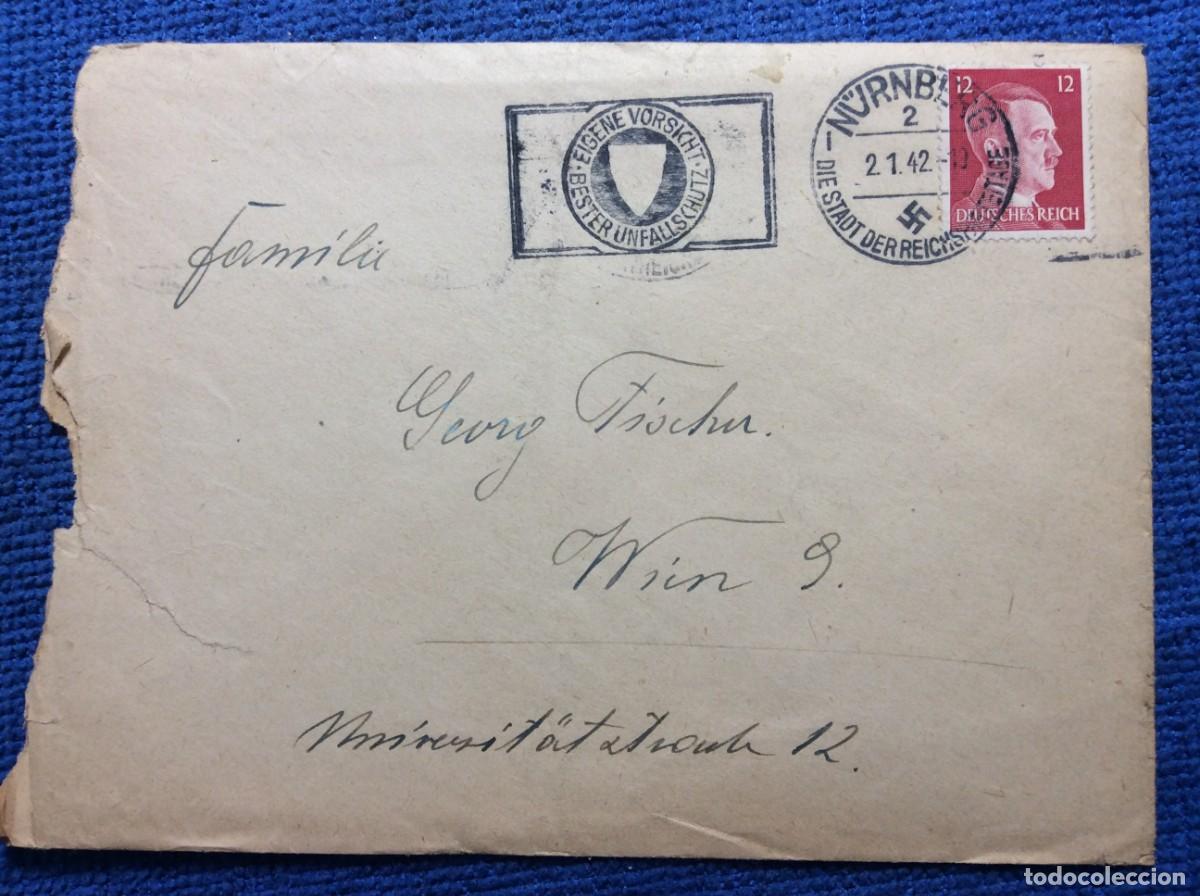 EIGENE VORSICHT · BESTER UNFALLSCHUTZ ·
NÜRNBERG
2
2.1.42
DIE STADT DER REICHSPARTEITAGE
12 12
DEUTSCHES REICH
Familie
Georg Fischer.
Wien 9.
Universitätstraße 12.
todocoleccion